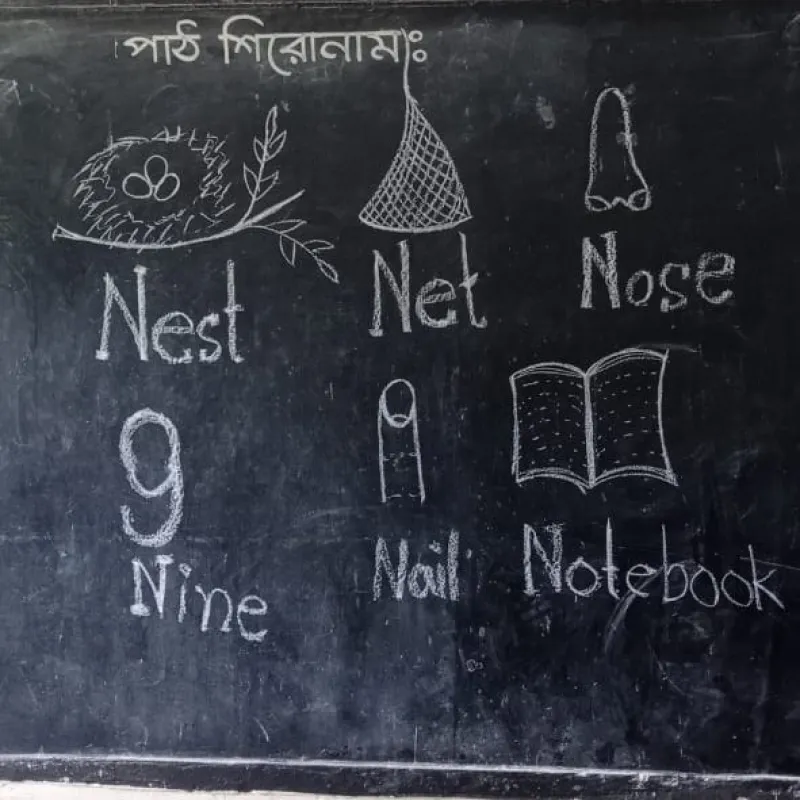 পাঠ শিরোনামঃ
Nest Net Nose
9
Nine Nail Notebook